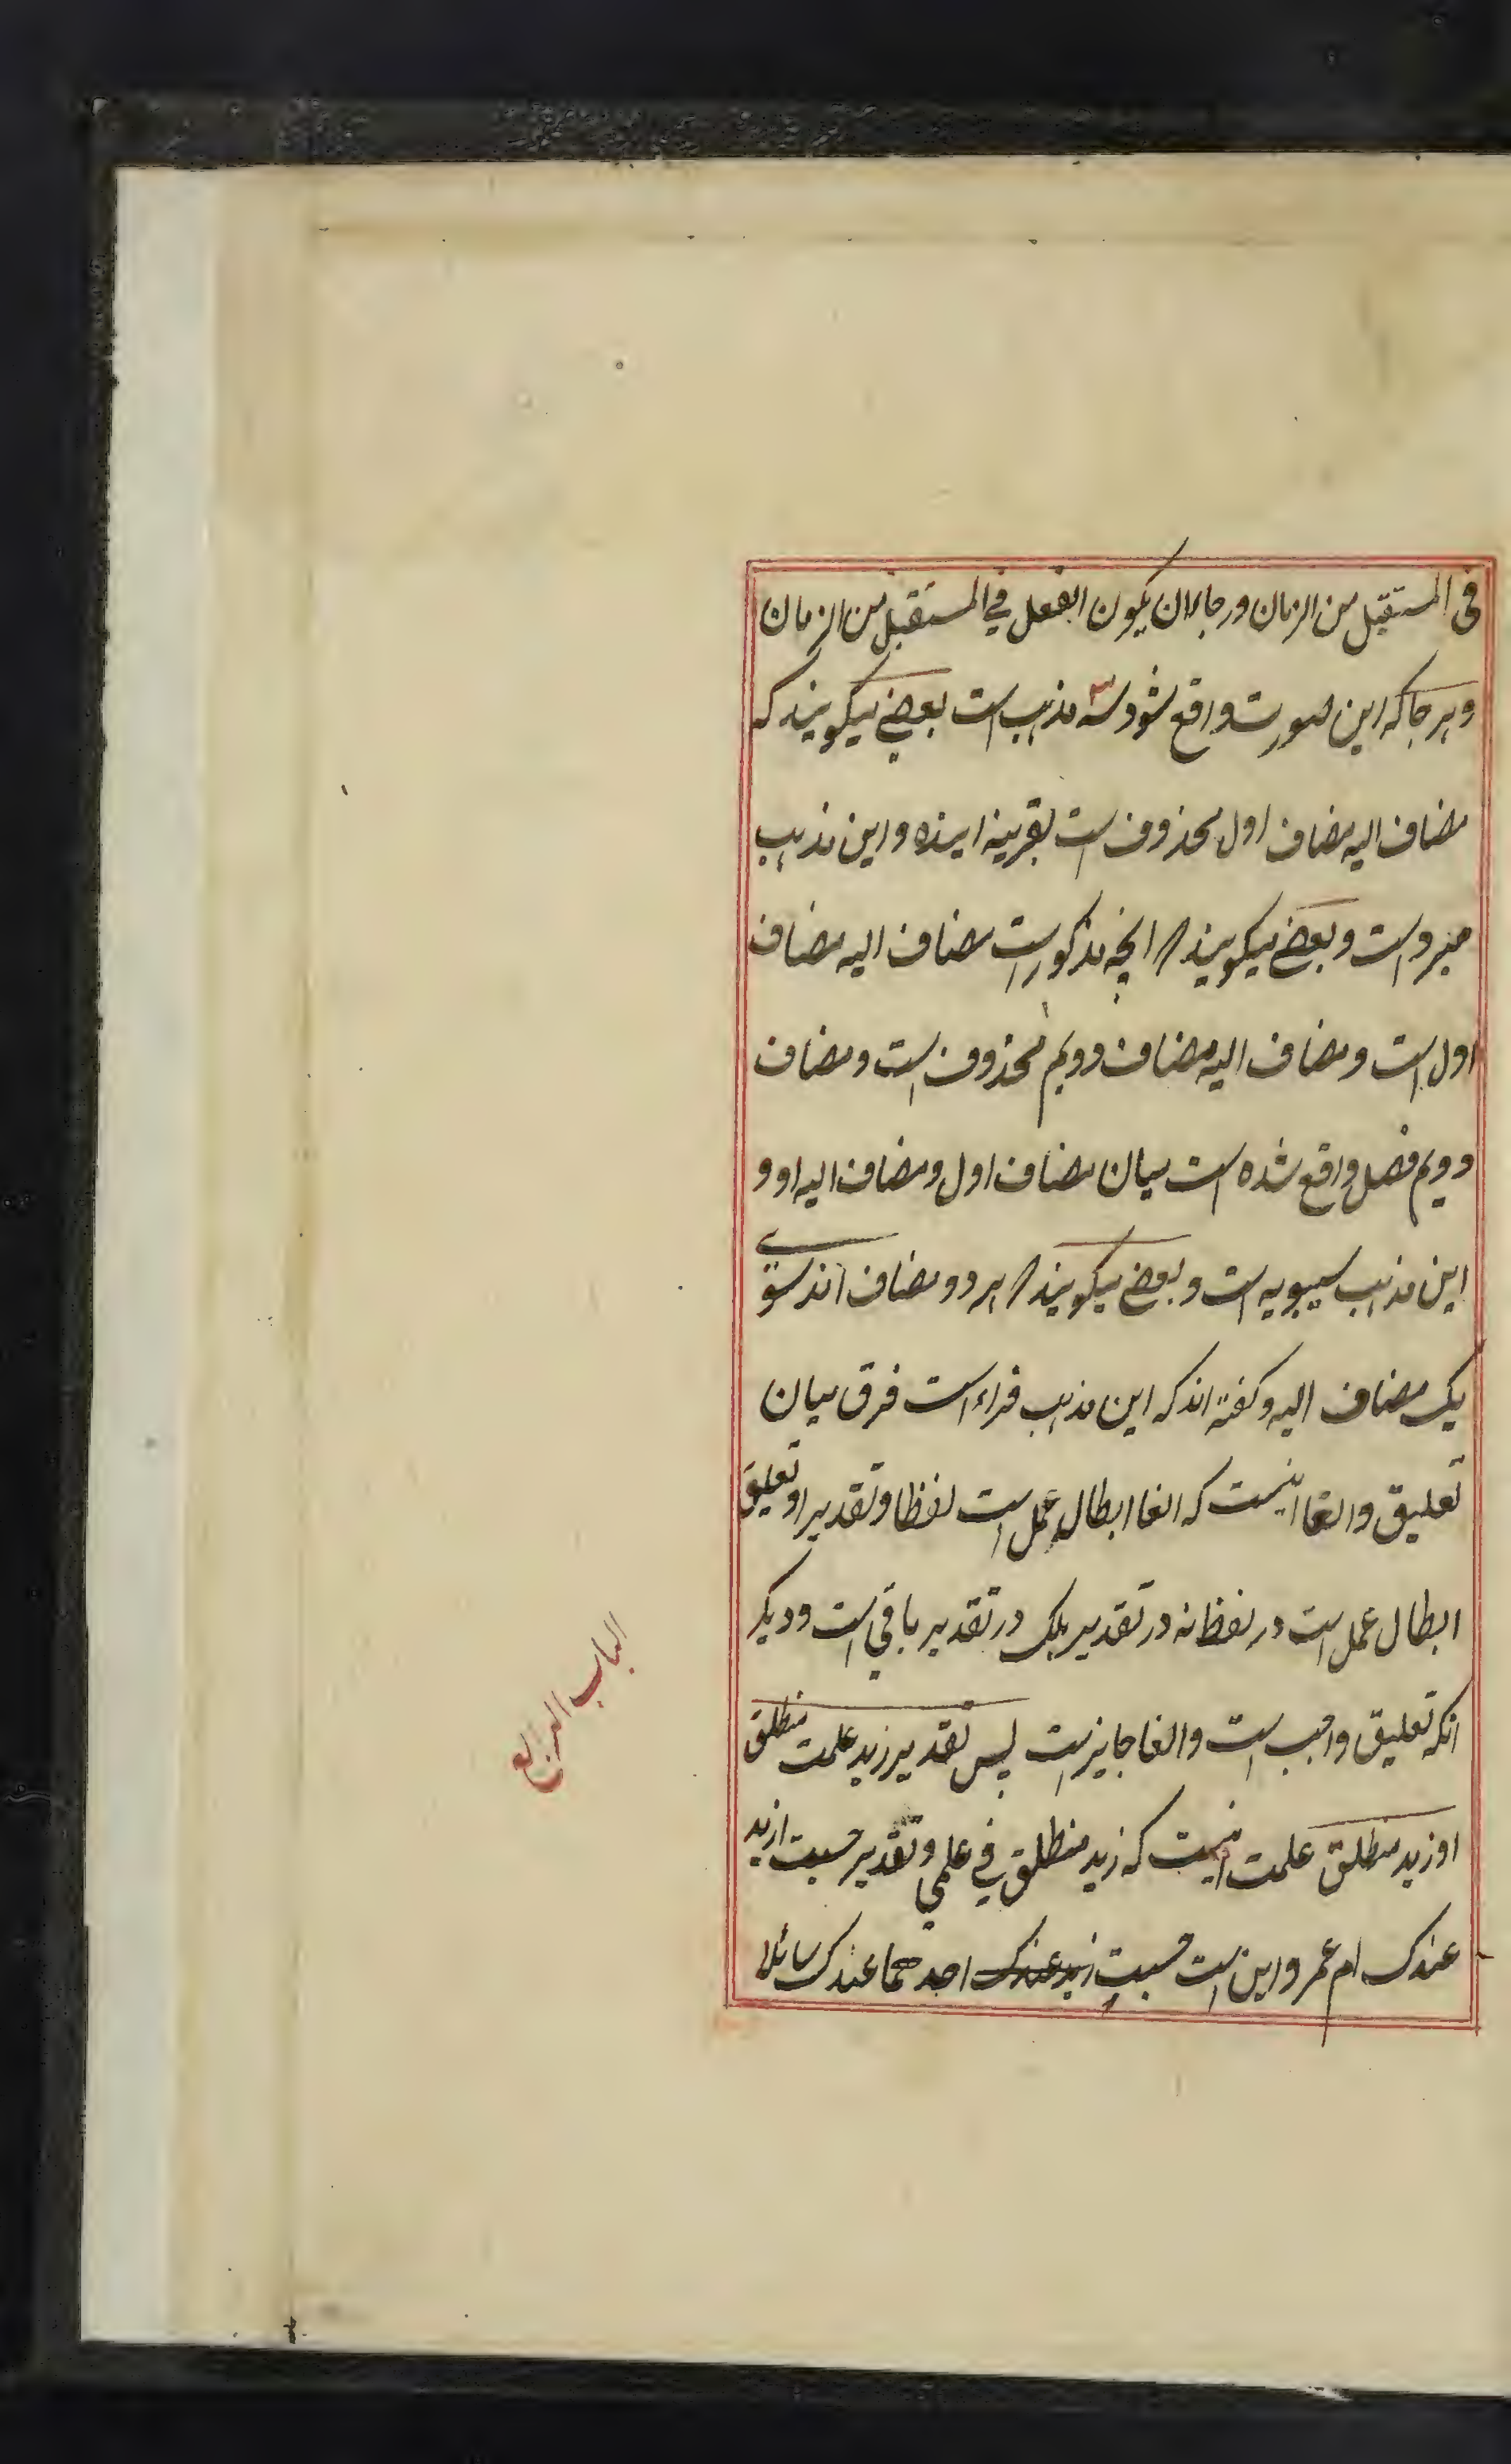 فی المستقبل من الزمان و رجا ان یکون الفعل فی المستقبل من الزمان
و هر جا که این صورت واقع شود سه مذهب است بعضی میکویند که
مضاف الیه مضاف اول محذوف است بقرینه اینده و این مذهب
مبرد است و بعضی میکویند انچه مذکور است مضاف الیه مضاف
اول است و مضاف الیه مضاف دویم محذوف است و مضاف
دویم فصل واقع شده است میان مضاف اول و مضاف الیه او و
این مذهب سیبویه است و بعضی میکویند هر دو مضاف اند سوی
یک مضاف الیه و کفته اند که این مذهب فراء است فرق میان
تعلیق و الغا اینست که الغا ابطال عمل است لفظا و تقدیرا و تعلیق
ابطال عمل است در لفظ نه در تقدیر بلک در تقدیر باقی است و دیکر
انکه تعلیق واجب است و الغا جایز است پس تقدیر زید علمت منطلق
او زید منطلق علمت اینست که زید منطلق فی علمی و تقدیر حسبت ازید
عندک ام عمرو این است حسبت زید عندک احدهما عندک سائلا
الباب الرابع